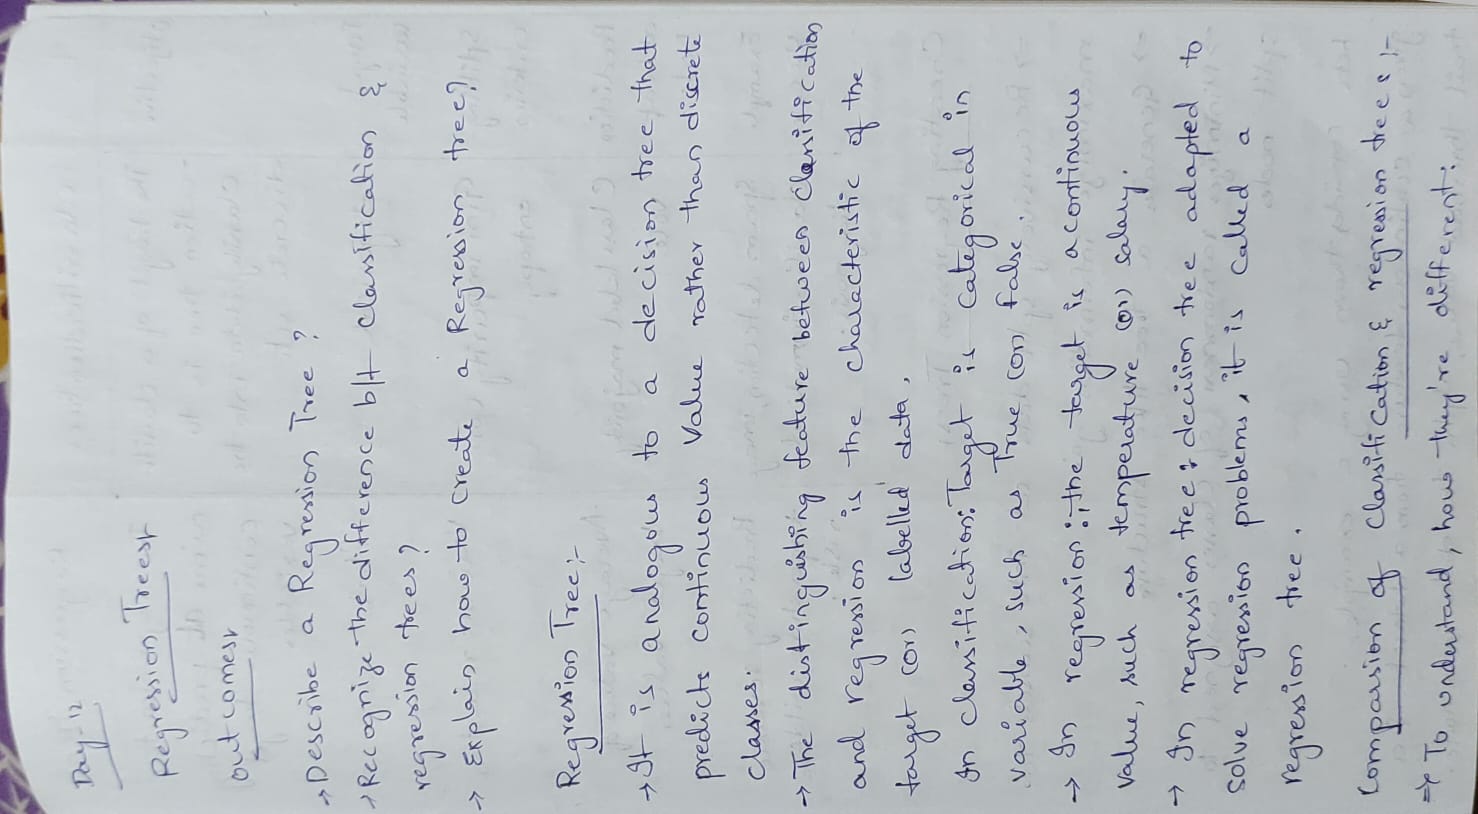 Day-12
Regression Trees:-
outcomes:-
→ Describe a Regression Tree ?
→ Recognize the difference b/t classification &
regression trees ?
→ Explain how to create a Regression tree?
Regression Tree:-
→ It is analogous to a decision tree that
predicts continuous value rather than discrete
classes.
→ The distinguishing feature between classification
and regression is the characteristic of the
target (or) labelled data,
In classification: Target is categorical in
variable, such as True (or) false.
→ In regression:, the target is a continuous
value, such as temperature (or) salary.
→ In regression tree: decision tree adapted to
solve regression problems, it is called a
regression tree.
Comparssion of classification & regression trees :-
⇒ To understand, how they're different: